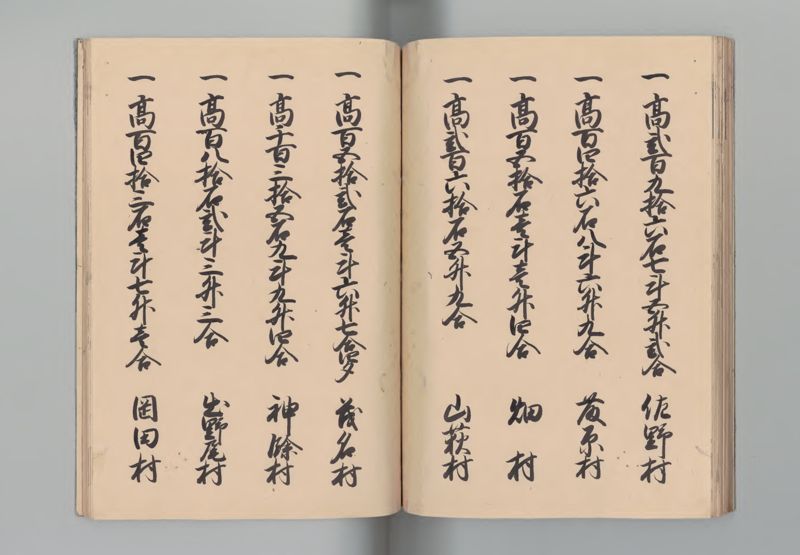 一 高弐百九拾六石七斗五升弐合 佐野村
一 高百四拾六石八斗六升九合 藤原村
一 高百五拾石壱斗壱升四合 畑村
一 高弐百六拾石五升九合 山荻村
一 高百五拾弐石壱斗六升七合四夕 茂名村
一 高千百三拾五石九斗九升四合 神余村
一 高百八拾石弐斗三升三合 出野尾村
一 高百四拾三石壱斗七升壱合 岡田村